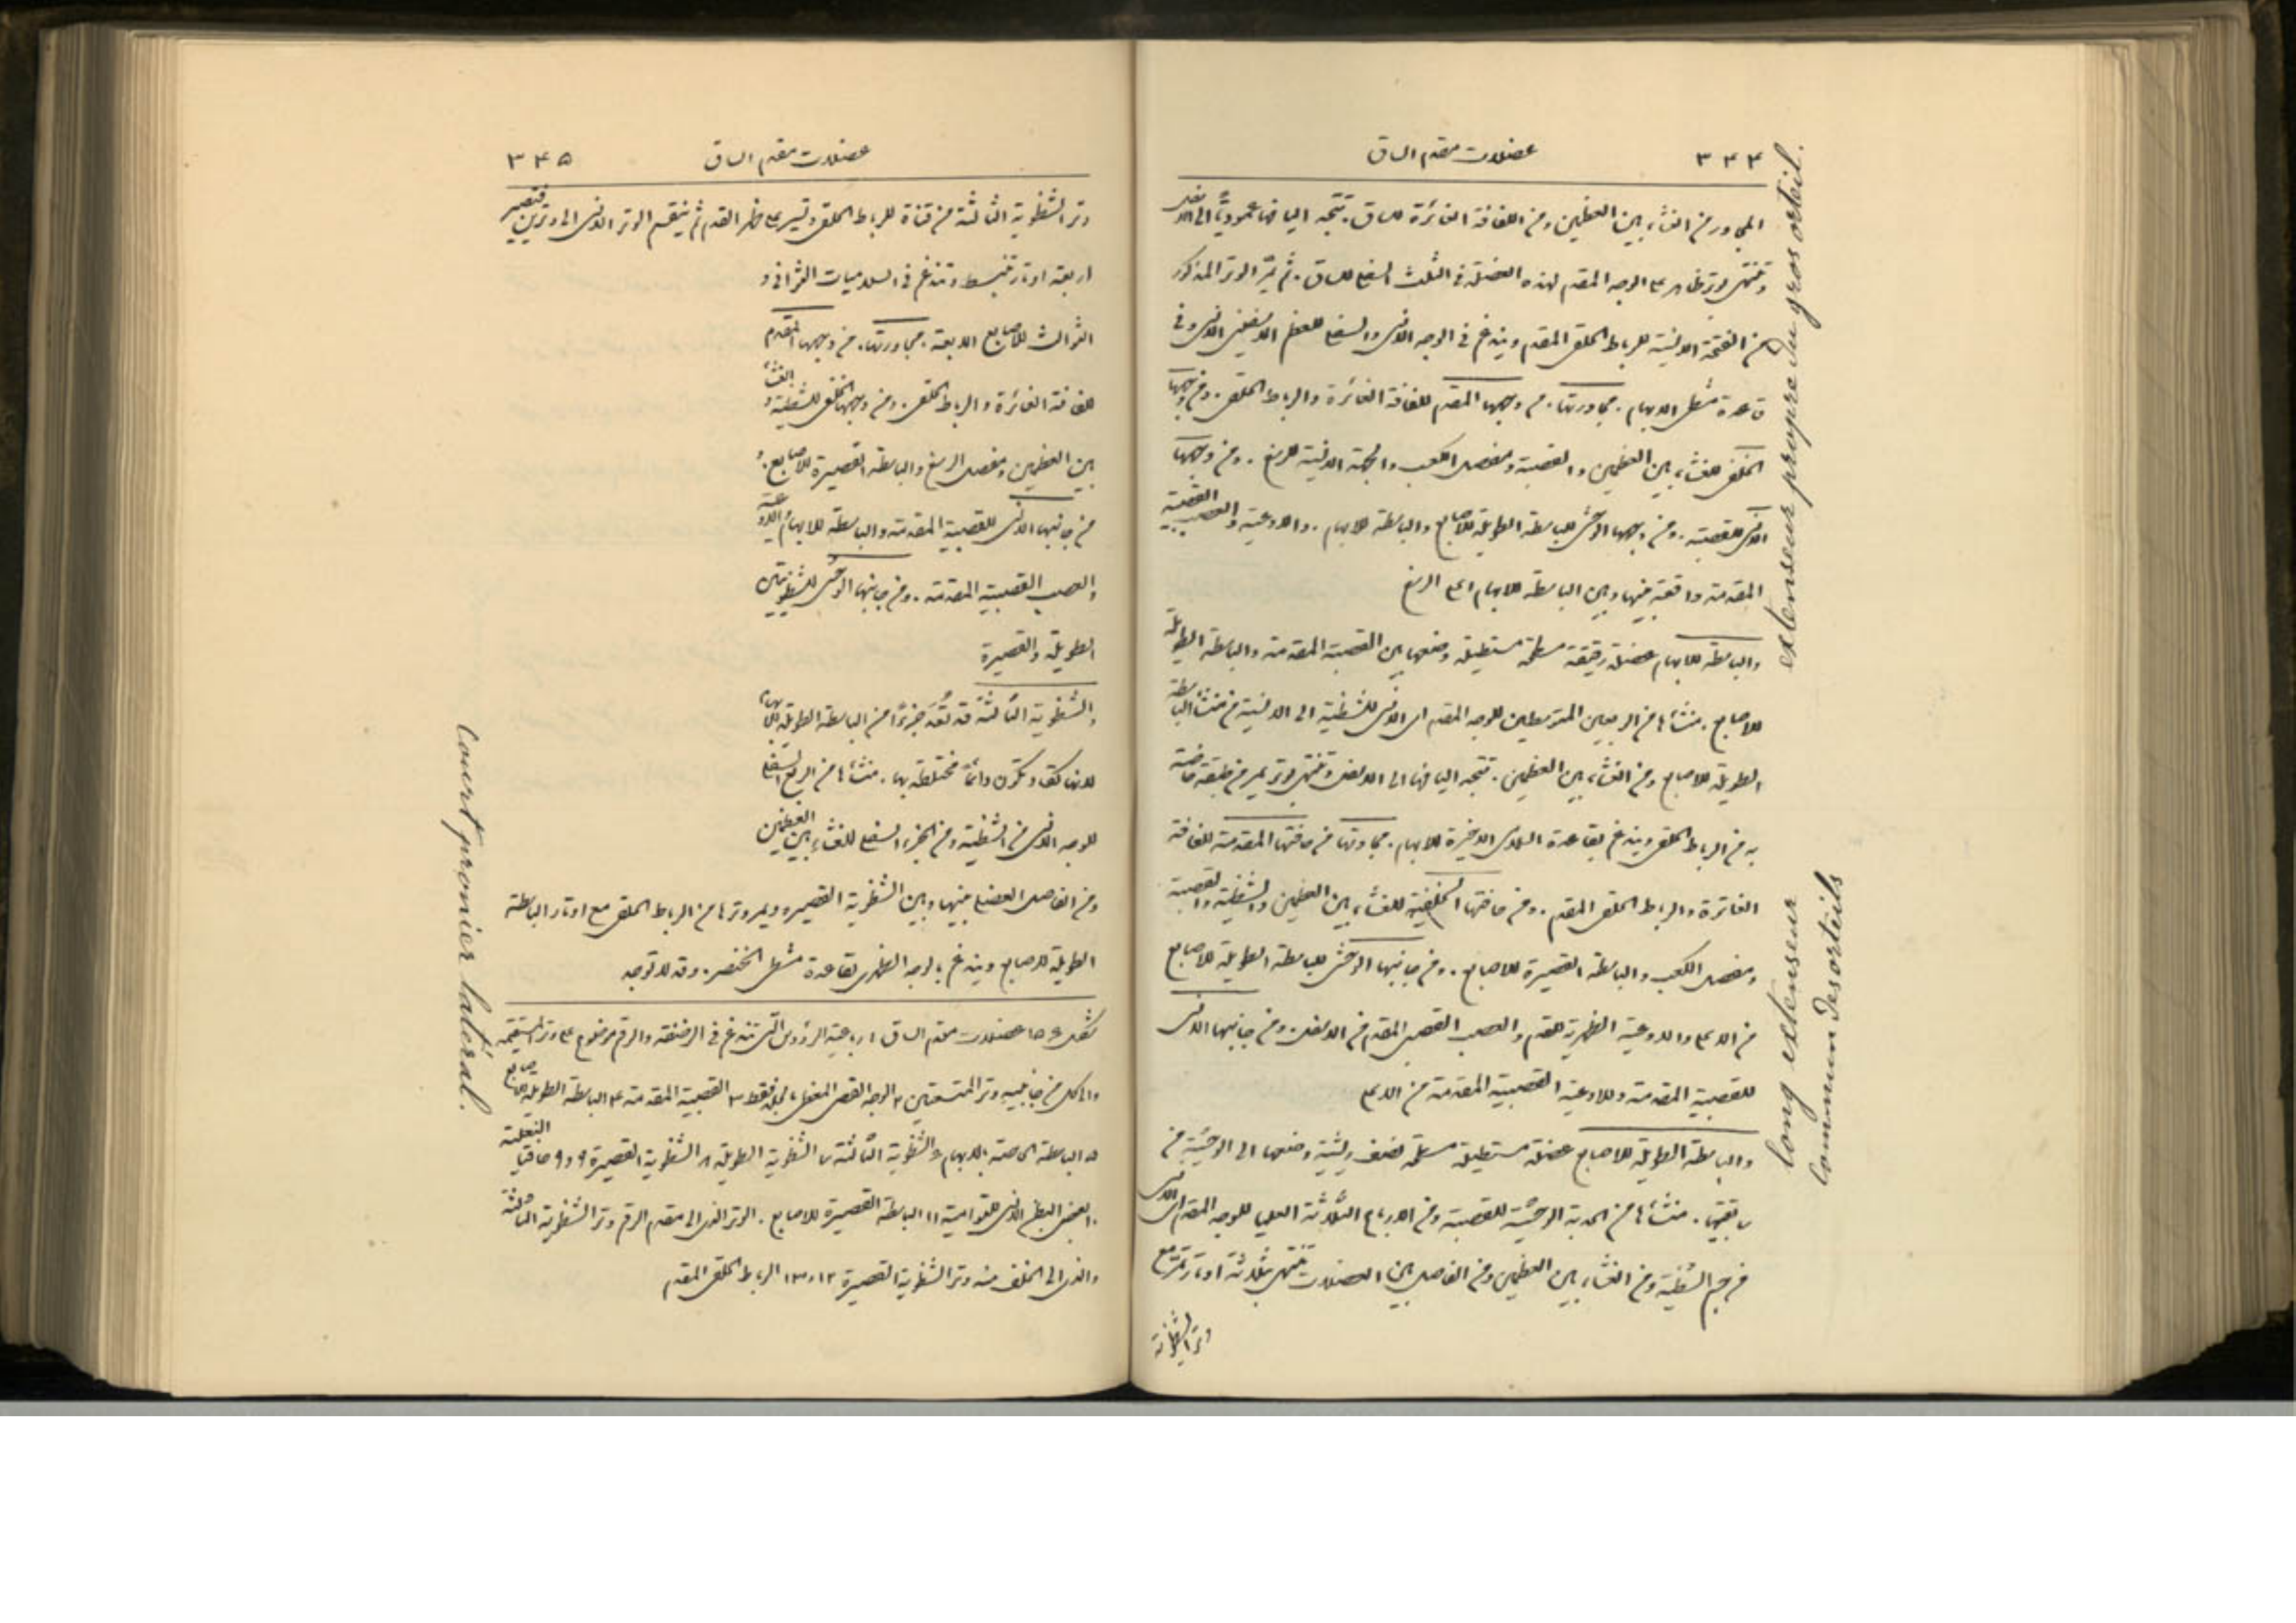 ٣٤٤
عضلات مقدم الساق
المجاور من الغشاء بين العظمين ومن اللفافة الغائرة للساق. تتجه اليافها عموديًّا الى الاسفل
وتنتهى بوتر ظاهر على الوجه المقدم لهذه العضلة فى الثلث السفلى للساق. ثم يمرّ الوتر المذكور
من الفتحة الانسية للرباط الحلقى المقدم ويندغم فى الوجه الانسى والسفلى للعظم الاسفينى الانسى وفى
قاعدة مشط الابهام. مجاورتها. من وجهها المقدم للفافة الغائرة والرباط الحلقى. ومن وجهها
الخلفى للغشاء بين العظمين والقصبة ومفصل الكعب والجهة الانسية للرسغ. ومن وجهها
الانسى للقصبة. ومن وجهها الوحشى للباسطة الطويلة للاصابع والباسطة للابهام. والاوعية والعصب القصبية
المقدمة واقعة بينها وبين الباسطة للابهام اعلى الرسغ
والباسطة للابهام عضلة رقيقة مسطحة مستطيلة وضعها بين القصبية المقدمة والباسطة الطويلة
للاصابع. منشأها من الربعين المتوسطين للوجه المقدم اى الانسى للشظية الى الانسية من منشأ الباسطة
الطويلة للاصابع ومن الغشاء بين العظمين. تتجه اليافها الى الاسفل وتنتهى بوتر يمر من طبقة خاصة
به من الرباط الحلقى ويندغم بقاعدة السلامى الاخيرة للابهام. مجاورتها من حافتها المقدمة للفافة
الغائرة والرباط الحلقى المقدم. ومن حافتها الخلفية للغشاء بين العظمين والشظية والقصبة
ومفصل الكعب والباسطة القصيرة للاصابع. ومن جانبها الوحشى للباسطة الطويلة للاصابع
من الاعلى والاوعية الظهرية للقدم والعصب القصبى المقدم من الاسفل. ومن جانبها الانسى
للقصبية المقدمة وللاوعية القصبية المقدمة من الاعلى
والباسطة الطويلة للاصابع عضلة مستطيلة مسطحة نصف ريشية وضعها الى الوحشية من
سابقتها. منشأها من الحدبة الوحشية للقصبة ومن الارباع الثلاثة العليا للوجه المقدم اى الانسى
من جسم الشظية ومن الغشاء بين العظمين ومن الفاصل بين العضلات تنتهى بثلاثة اوتار تمر مع
وتر الشظوية
extenseur propre du gros orteil.
long extenseur
commun des orteils
٣٤٥
عضلات مقدم الساق
وتر الشظوية الثالثة من قناة للرباط الحلقى وتسير على ظهر القدم ثم ينقسم الوتر الانسى الى وترين فتصير
اربعة اوتار تنبسط وتندغم فى السلاميات الثوانى و
الثوالث للاصابع الاربعة. مجاورتها. من وجهها المقدم
للفافة الغائرة والرباط الحلقى. ومن وجهها الخلفى للشظية والغشاء
بين العظمين ومفصل الرسغ والباسطة القصيرة للاصابع. و
من جانبها الانسى للقصبية المقدمة والباسطة للابهام والاوعية
والعصب القصبية المقدمة. ومن جانبها الوحشى للشظويتين
الطويلة والقصيرة
والشظوية الثالثة قد تُعَدّ جزءًا من الباسطة الطويلة للابهام
لانها تكون دائمًا مختلطة بها. منشأها من الربع السفلى
للوجه الانسى من الشظية ومن الجزء السفلى للغشاء بين العظمين
ومن الفاصل العضلى بينها وبين الشظوية القصيره ويمر وترها من الرباط الحلقى مع اوتار الباسطة
الطويلة للاصابع ويندغم بالوجه الظهرى لقاعدة مشط الخنصر. وقد لا توجد
شكل ١٥٤ عضلات مقدم الساق ١ رباعية الرؤوس التى تندغم فى الرضفة والرقم موضوع على وتر المستقيمة
والكل من جانبيه وتر المتسعتين ٢ الوجه القصبى المغطى بالجلد فقط ٣ القصبية المقدمة ٤ الباسطة الطويلة للاصابع
٥ الباسطة الخاصة بالابهام ٦ الشظوية الثالثة ٧ الشظوية الطويلة ٨ الشظوية القصيرة ٩ و٩ حافتا النعلية
١٠ البطن الانسى للتوأمية ١١ الباسطة القصيرة للاصابع. الوتر الذى الى مقدم الرقم وتر الشظوية الثالثة
والذى الى الخلف منه وتر الشظوية القصيرة ١٢ و١٣ الرباط الحلقى المقدم
Court peronier latéral.